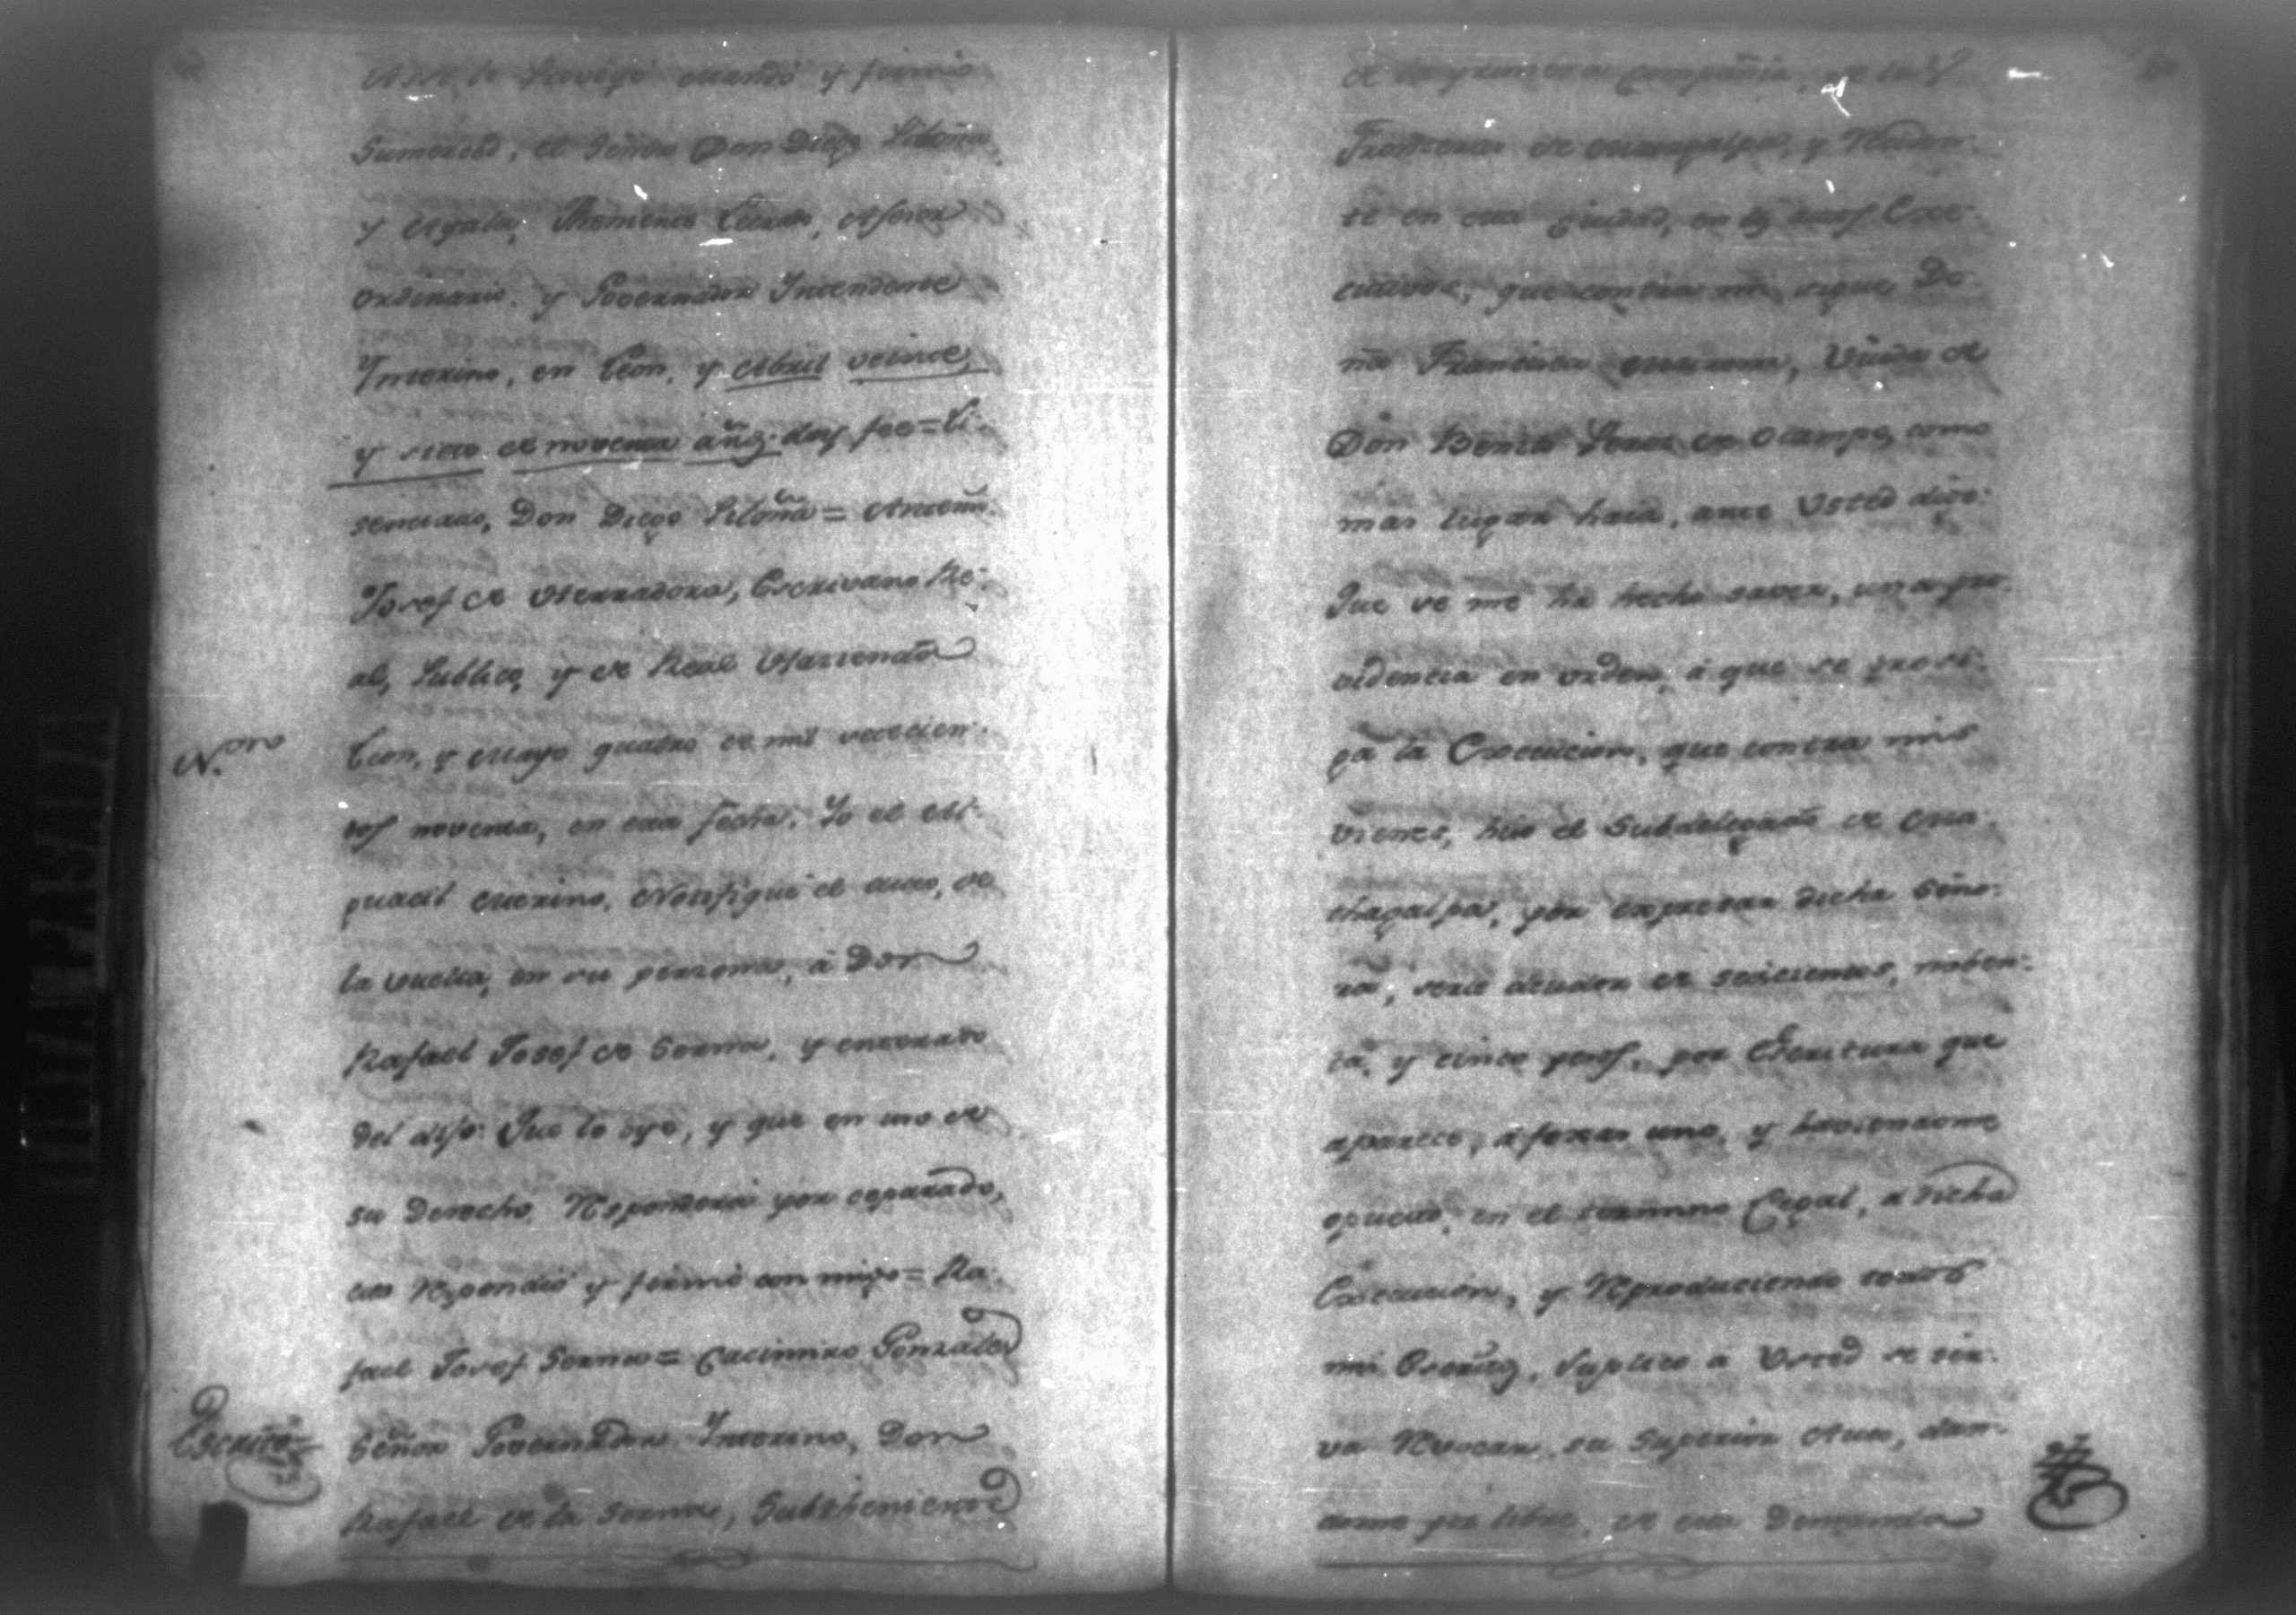 Assi lo Proveyó mandó y firmó
Sumerced, el Señor Don Diego Piloña
y Ayala, Theniente Letrado, Asesor
Ordinario y Governador Yntendente
Ynterino, en Leon, y Abril veinte,
y siete de noventa añ.s doy fee = Li-
senciado, Don Diego Piloña = Antemi
Josef de Herradora, Escrivano Re-
al, Publico, y de Real Hazienda
N.on
Leon, y Mayo quatro de mil setecien-
tos noventa, en esta fecha. Yo el Al-
guacil Interino, Notifiqué el auto, de
la vuelta, en su perzona, à Don
Rafael Josef de Serna, y enterado
del dijo: Que lo oye, y que en uso de
su Derecho, Responderá por separado,
esto Respondió y firmó conmigo = Ra-
fael Josef Serna = Cacimiro Gonzales
Escrito
Señor Governador Ynterino, Don
Rafael de la Serna, Subtheniente
de la primera compañia, de las
Fronteras de Matagalpa, y Residen-
te en esta Ciudad, en los autos Exe-
cutivos, que contra mi sigue Do-
ña Francisca, Viuda de
Don Benito Perez de Ocampo, como
mas lugar haia, ante Usted digo:
Que se me ha hecho saver, una pro-
videncia en orden, á que se prosi-
ga la Execucion, que contra mis
vienes, hiso el Subdelegado de Ma-
thagalpa, por expresar dicha Seño-
ra, serle deudor de seiscientos, noben-
ta, y cinco pesos, por Escritura que
aparece, á foxas uno, y haviendome
opuesto, en el termino Legal, à dicha
Execucion, y Reproduciendo todos
mis Escritos, Suplico a Usted se sir-
va Revocar su Superior Auto, dan-
dome por libre, de esta Demanda